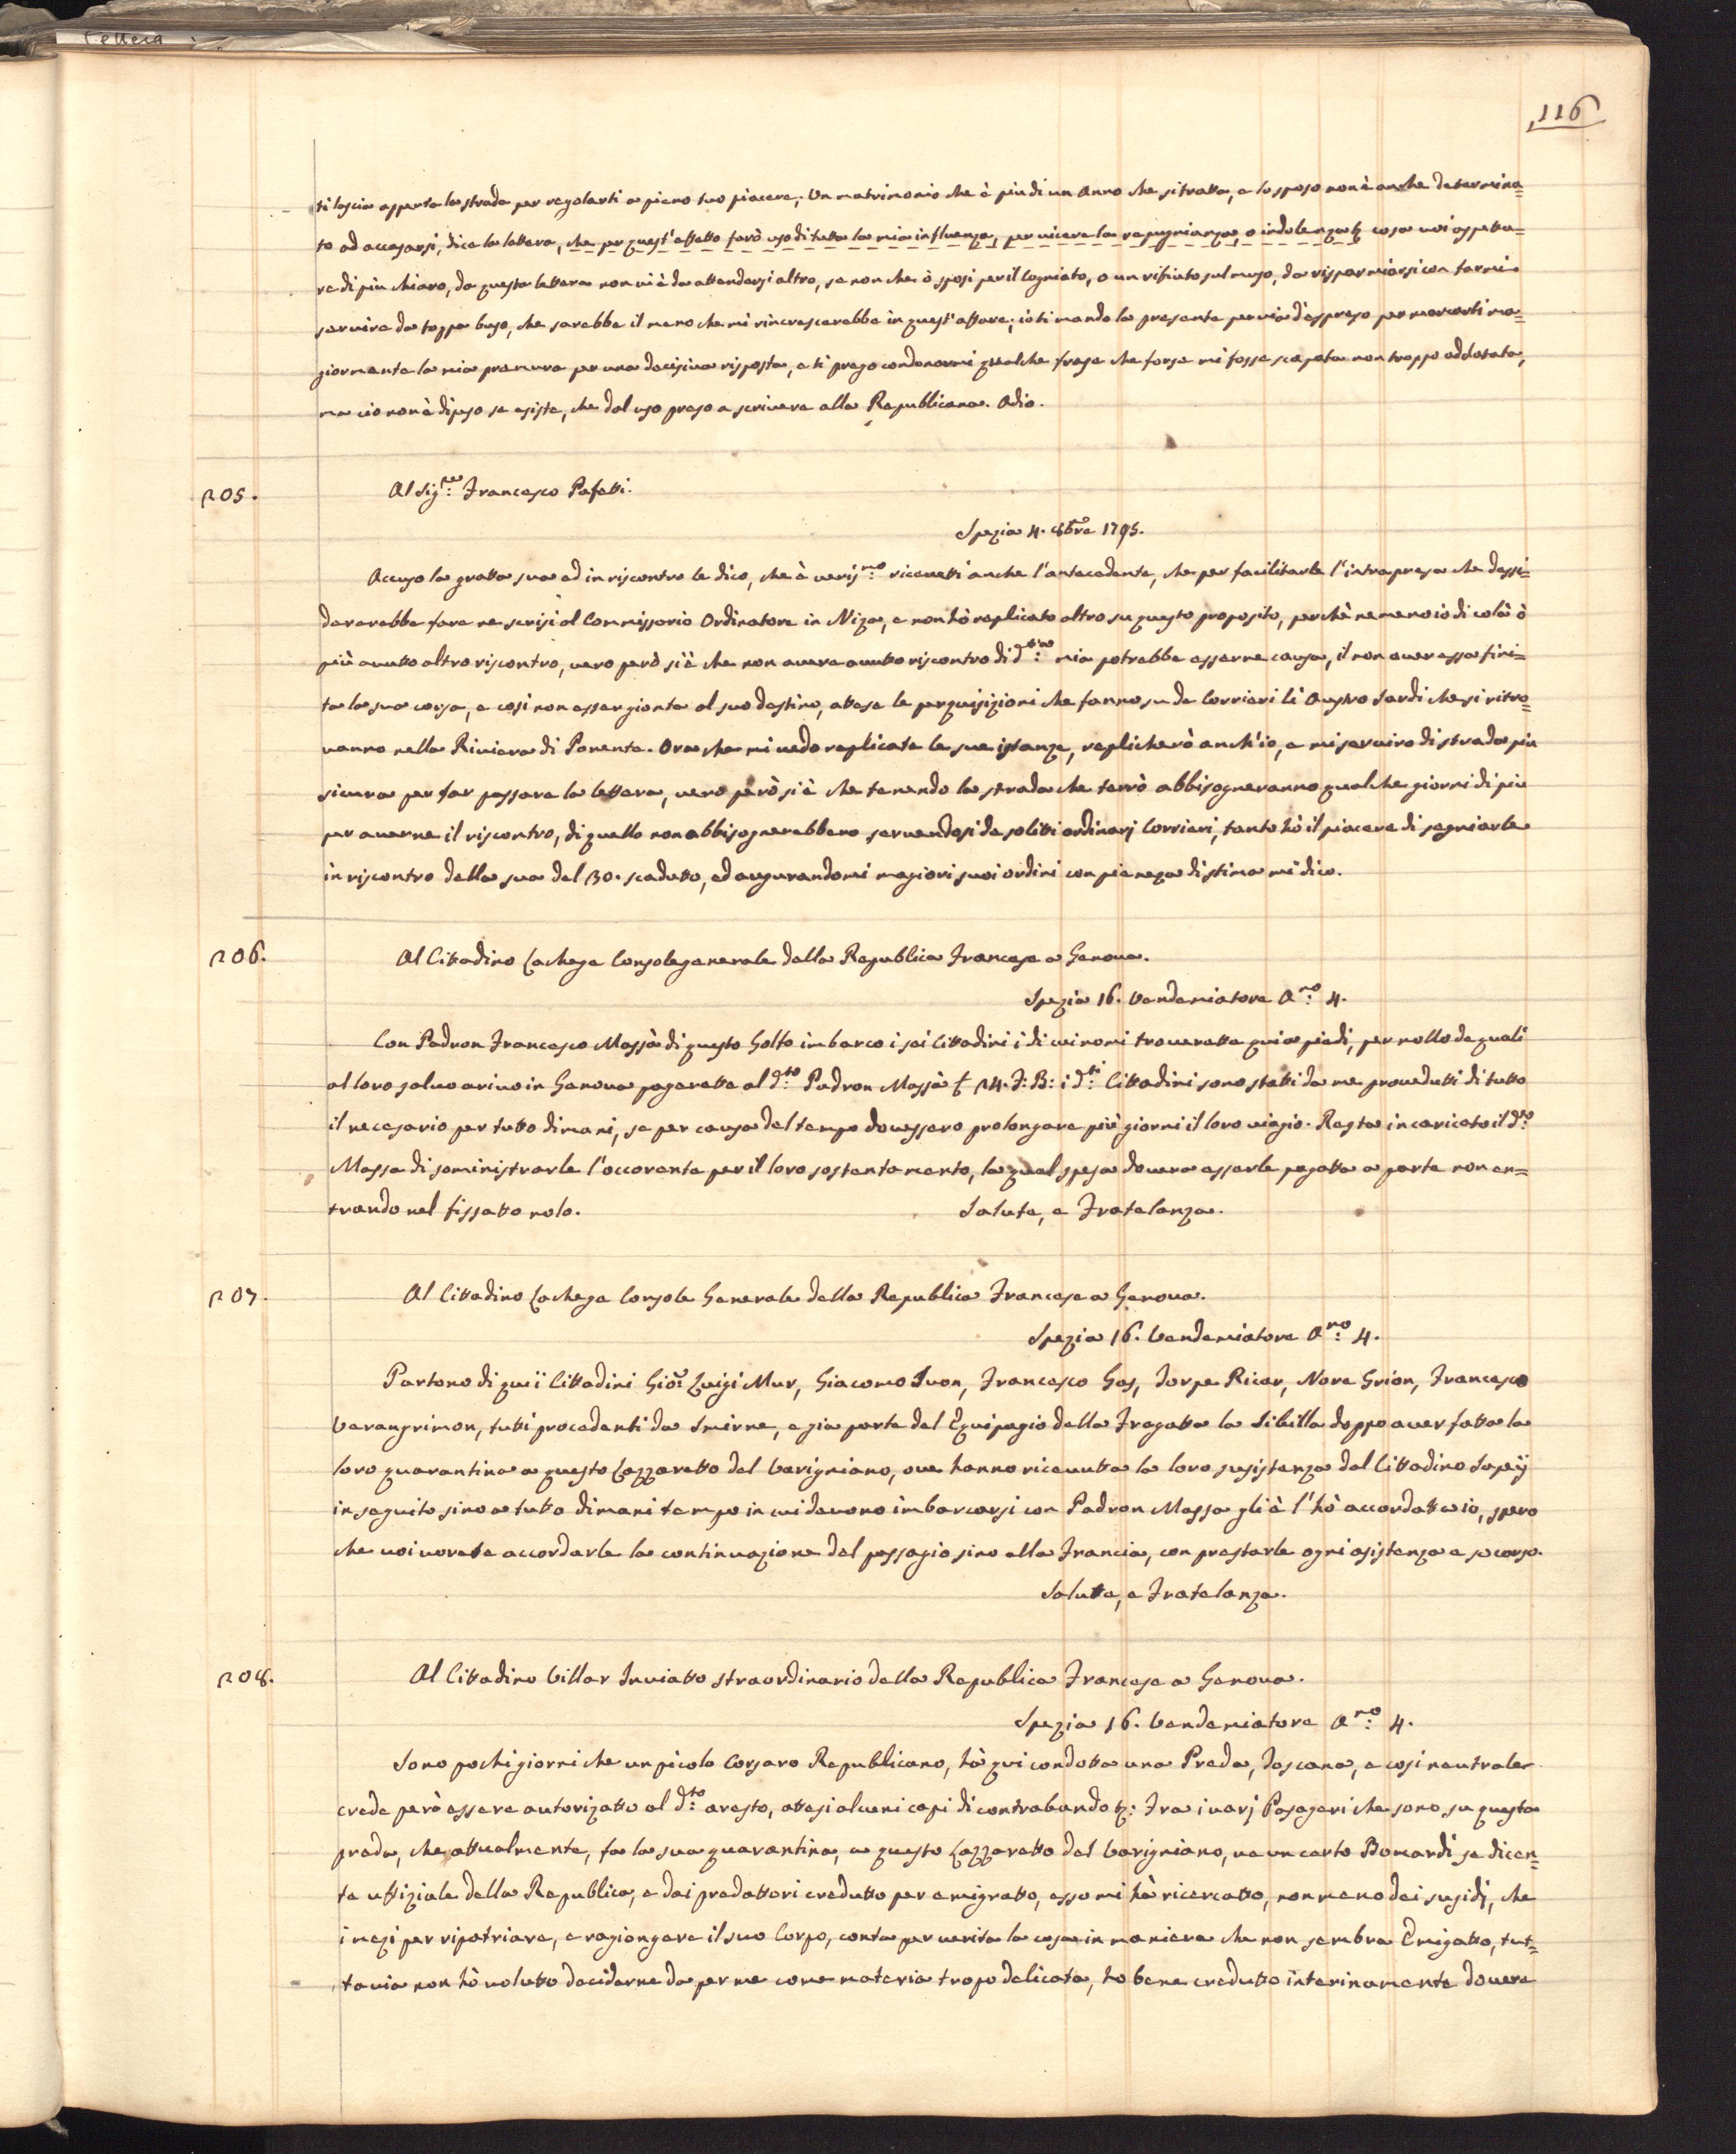 Lettera
116
ti lascia apperta la strada per regolarti a pieno tuo piacere; Un matrimonio che è piu di un Anno che si tratta, e lo sposo non è anche determina=
to ad accasarsi, dice la lettera, che per quest'effetto farò uso di tutta la mia influenza, per vicere la repugnianza, o indolenza &c cosa voi aspetta=
re di piu chiaro, da questa lettera non vi è da attendersi altro, se non che ò sposi per il Cogniato, o un rifiuto sul muso, da risparmiarsi con farmi
servire da toppa buso, che sarebbe il meno che mi rincrescerebbe in quest'affare; io ti mando la presente per via d'espreso per marcarti ma=
giormente la mia premura per una decisiva risposta, e ti prego condonarmi qualche frase che forse mi fosse scapata non troppo addatata,
ma cio non è dipeso se esiste, che dal uso preso a scrivere alla Republicana. Adio.
205.
Al Sig.re Francesco Pafetti.
Spezia 4. 8bre 1795.
Accuso la gratta sua ed in riscontro le dico, che è veris.mo ricevetti anche l'antecedente, che per facilitarle l'intrapresa che dessi=
derarebbe fare ne scrisi al Commissario Ordinatore in Niza, e non hò replicato altro su questo proposito, perchè nemeno io di colà ò
più avutto altro riscontro, vero però si è che non avere avutto riscontro di d.tta mia potrebbe esserne causa, il non aver essa fini=
ta la sua corsa, e cosi non esser gionta al suo destino, attese le perquisizioni che fanno su de Corrieri li Austro Sardi che si ritro=
vanno nella Riviera di Ponente. Ora che mi vedo replicate le sue istanze, replicherò anch'io, e mi serviro di strada piu
sicura per far passare la lettera, vero però si è che tenendo la strada che terrò abbisogneranno qualche giorni di piu
per averne il riscontro, di quello non abbisognerebbero servendosi de soliti ordinarj Corrieri, tanto hò il piacere di segniarle
in riscontro della sua del 30. scadutto, ed augurandomi magiori suoi ordini con pieneza di stima mi dico.
206.
Al Cittadino Lachege Consolegenerale della Republica Francese a Genova.
Spezia 16. Vendemiatore A.no 4.
Con Padron Francesco Massà di questo Golfo imbarco i sei Cittadini i di cui nomi troverette qui a piedi, per nollo de quali
al loro salvo arivo in Genova pagarette al d.to Padron Massà £ 24. F: B: i d.ti Cittadini sono statti da me provedutti di tutto
il necesario per tutto dimani, se per causa del tempo dovessero prolongare più giorni il loro viagio. Resta incaricato il d.to
Massa di soministrarle l'occorente per il loro sostentamento, la qual spesa dovera esserle pagatta a parte non en=
trando nel fissatto nolo.
Salute, e Fratelanza.
207.
Al Cittadino Lachege Console Generale della Republica Francese a Genova.
Spezia 16. Vendemiatore A.no 4.
Partono di qui i Cittadini Gio: Luigi Mur, Giacomo Iuon, Francesco Gas, Jorpe Ricar, Nore Grion, Francesco
Verangrimon, tutti procedenti da Smirne, e gia parte del Equipagio della Fregatta la Sibilla doppo aver fatta la
loro quarantina a questo Lazzaretto del Varigniano, ove hanno ricevutta la loro susistenza dal Cittadino Sapij
in seguito sino a tutto dimani tempo in cui devono imbarcarsi con Padron Massa gli è l'hò accordatta io, spero
che voi vorete accordarle la continuazione del passagio sino alla Francia, con prestarle ogni asistenza e socorso.
Salutte, e Fratelanza.
208.
Al Cittadino Villar Inviatto straordinario della Republica Francese a Genova.
Spezia 16. Vendemiatore A.no 4.
Sono pochi giorni che un picolo Corsaro Republicano, hà qui condotta una Preda, Toscana, e cosi neutrale
crede però essere autorizatto al d.to aresto, attesi alcuni capi di contrabando &c: Fra i varj Pasageri che sono su questa
preda, che attualmente, fa la sua quarantina, a questo Lazzaretto del Varigniano, ve un certo Bomardi se dicen=
te uffiziale della Republica, e dai predattori credutto per emigratto, esso mi hà ricercatto, non meno dei susidj, che
i mezi per ripatriare, e ragiongere il suo Corpo, conta per verita la cosa in maniera che non sembra Emigatto, tut=
tavia non hò volutto deciderne da per me come materia tropo delicata, ho bene credutto interinamente dovere